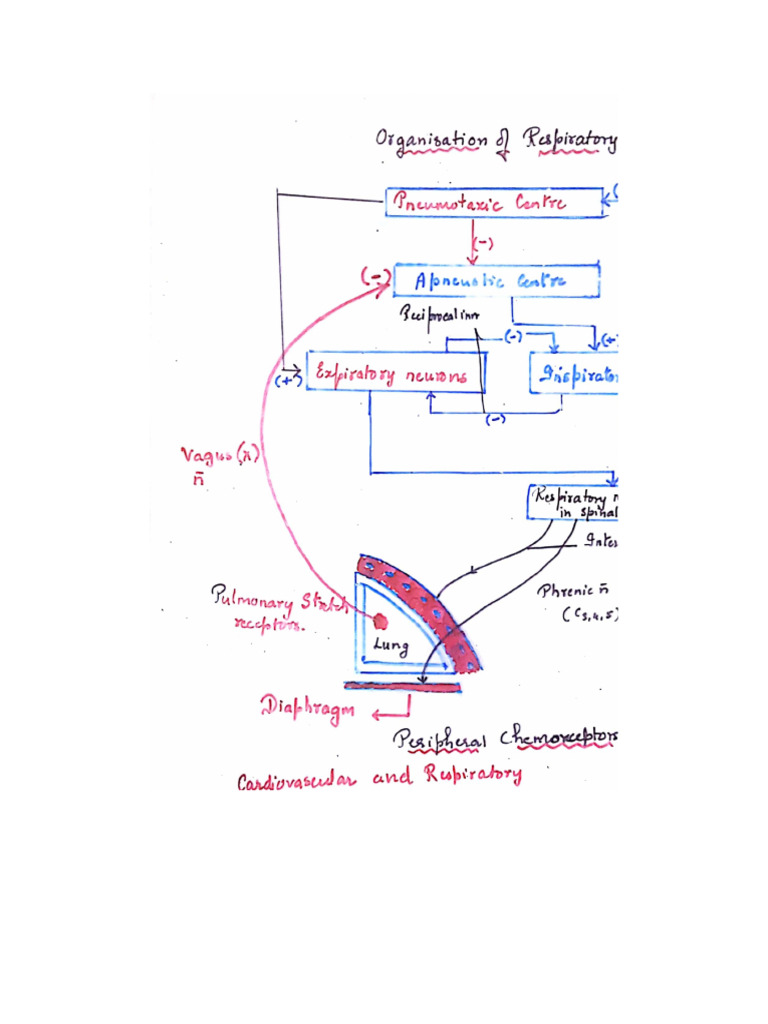 Organisation of Respiratory
Pneumotaxic Centre
(
(-)
(-)
Apneustic Centre
Reciprocal inn
(-)
(+
Expiratory neurons
Inspirator
(+)
(-)
Vagus (x)
n̄
Respiratory n
in spinal
Inter
Phrenic n̄
(C3,4,5)
Pulmonary Stretch
receptors.
Lung
Diaphragm
Peripheral Chemoreceptors
Cardiovascular and Respiratory